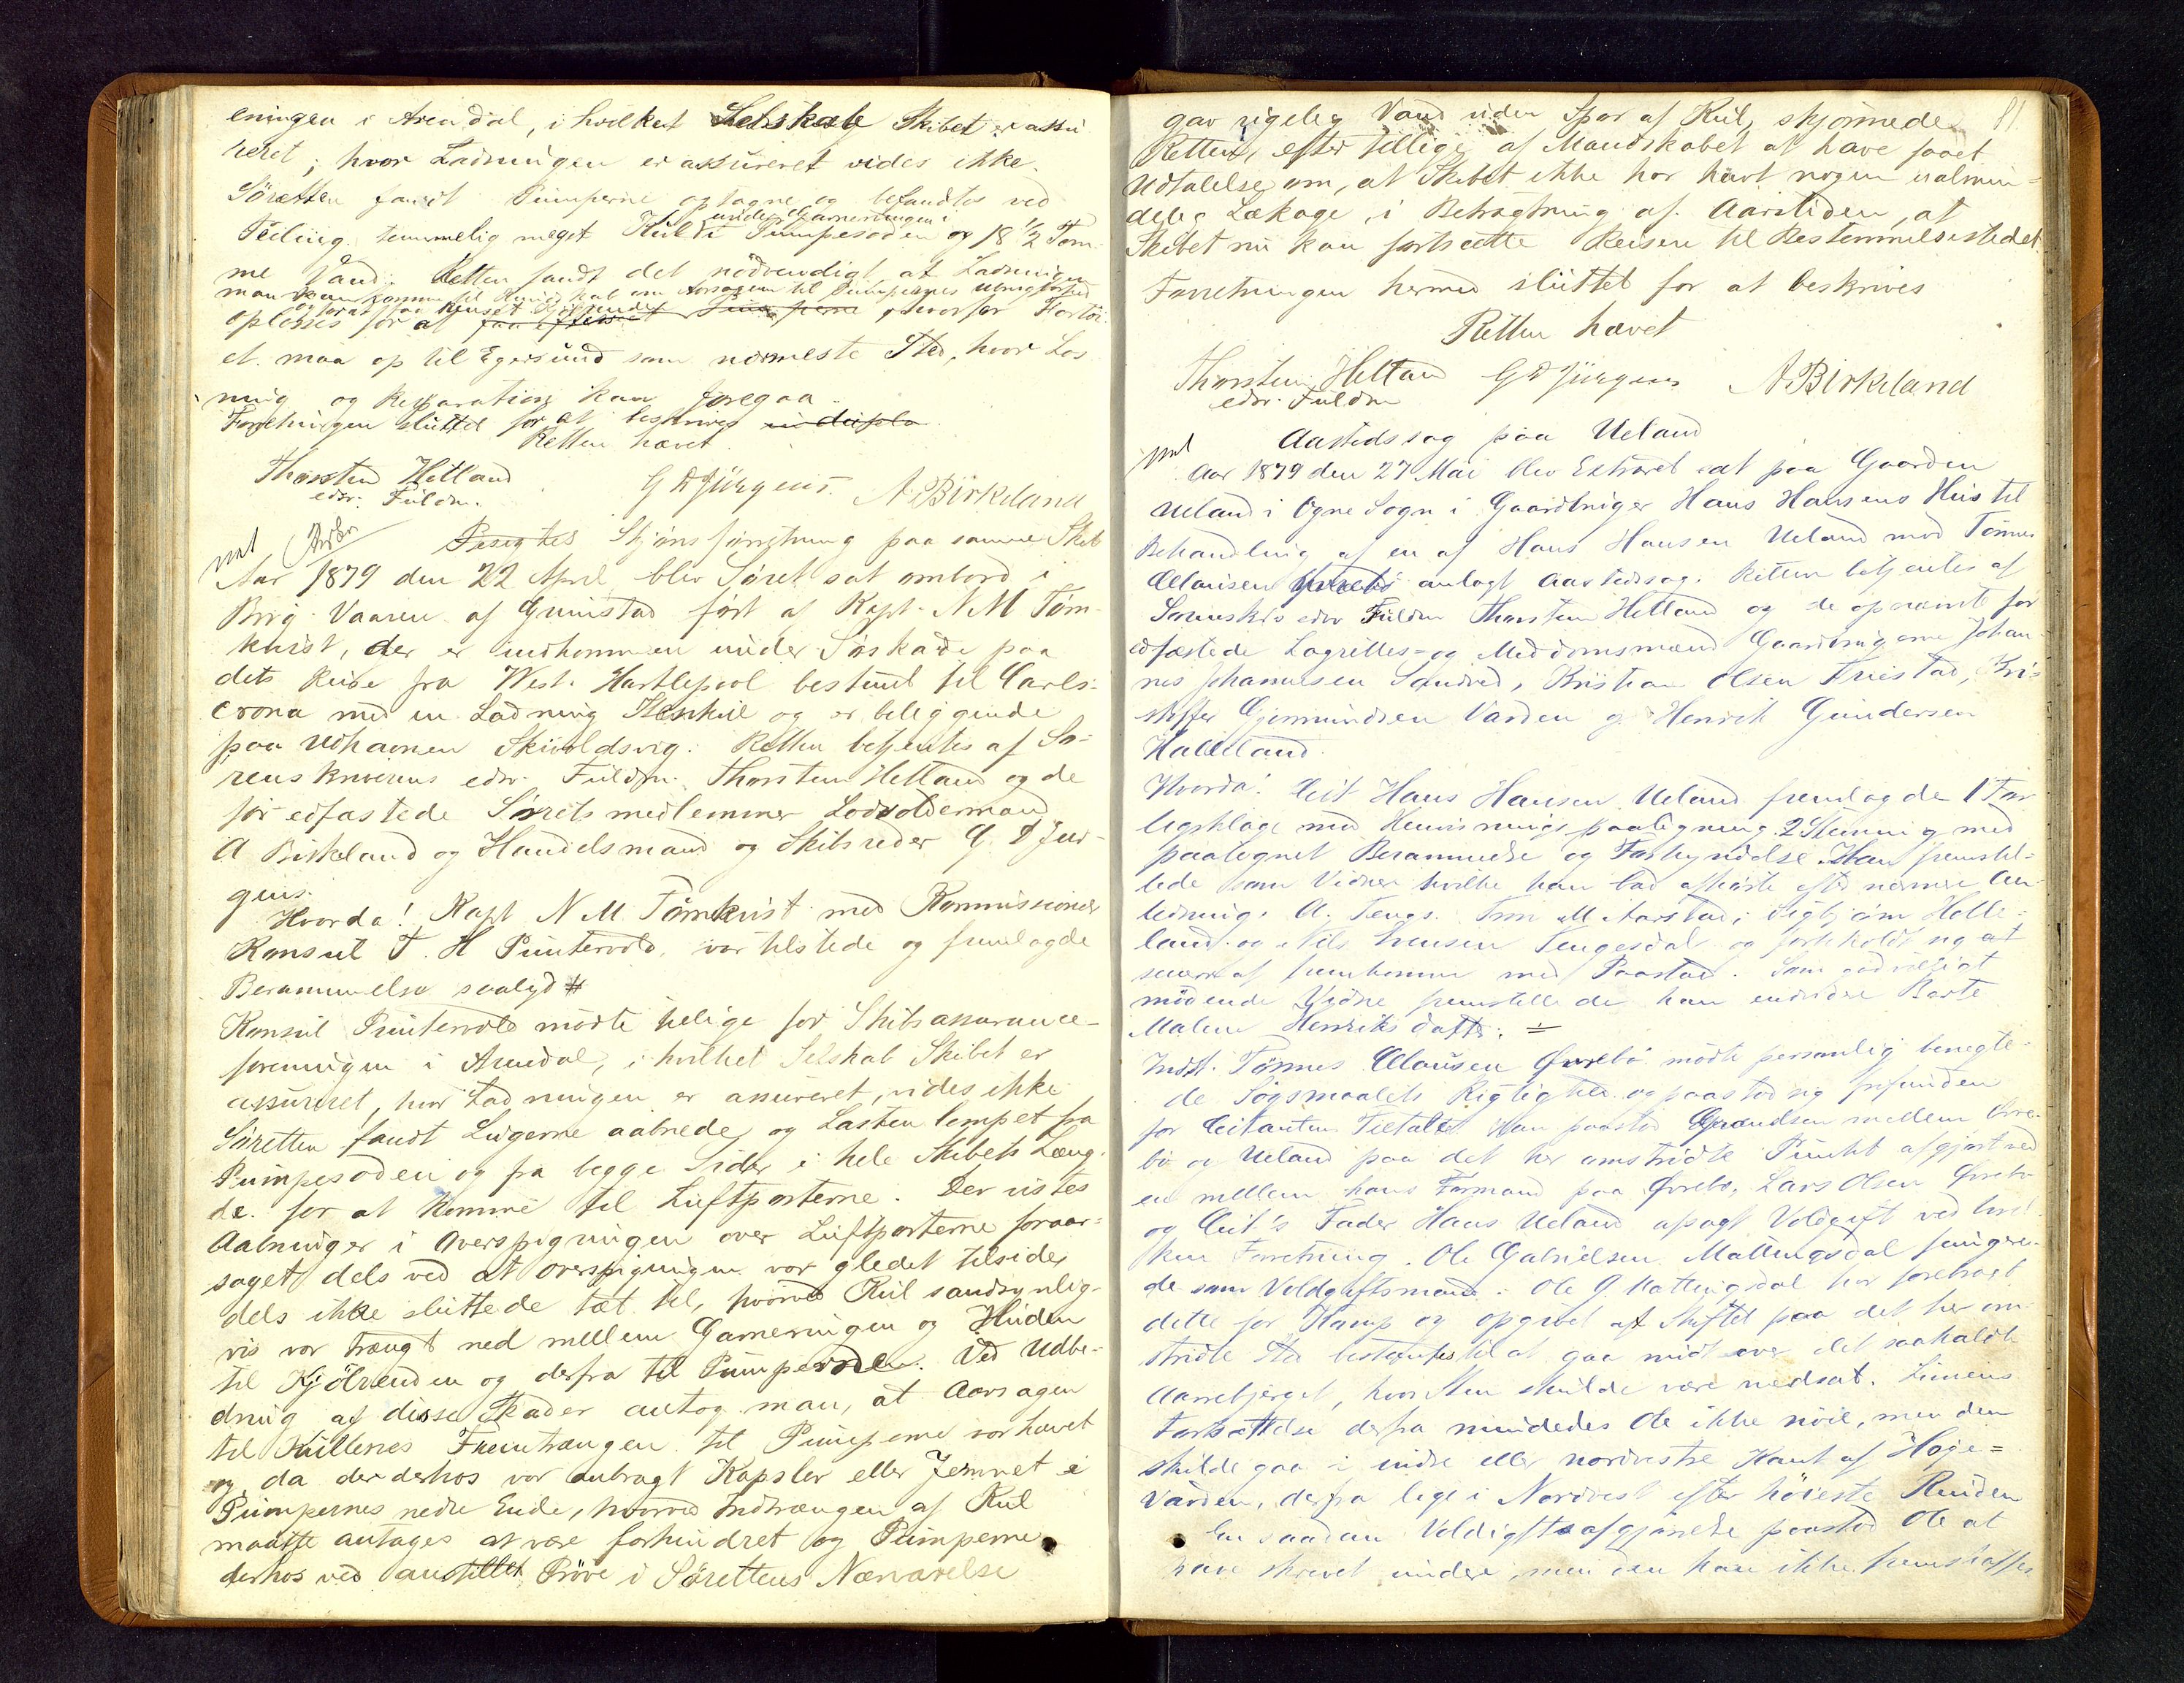 eningen i Arendal, i hvilket Selskab Skibet er assu
reret; hvor Ladningen er assureret vides ikke.
Söretten fandt Pumperne optagne og befandtes ved
under Garneringen i
Peiling temmelig meget Kul i Pumpesoden og 18 1/2 Tom
me Vand. Retten fandt det nödvendigt at Ladningen
man kan komme til Kundskab om Aarsagen til Pumpernes
og for at faa renset
oplosses for at faa efterseet Pumperne, hvorfor Fartöi
et maa op til Egersund som nærmeste Sted, hvor Los
ning og Reparation kan foregaa.
Forretningen sluttet for at beskrives in duplo
Retten hævet.
Thorsten Hetland G D Jürgens. A. Birkeland
edsv. Fuldm.
Besigtes Skjönsforretning paa samme Skib
Aar 1879 den 22 April blev Söret sat ombord i
Brig Vaaren af Grimstad fört af Kapt. N M Törn
kvist, der er indkommen under Söskade paa
dets Reise fra West Hartlepool bestemt til Carls-
crona med en Ladning Stenkul og er beliggende
paa Udhavnen Skivoldsvig. Retten betjentes af So-
renskriverens edsv. Fuldm. Thorsten Hetland og de
för edfæstede Sörets medlemmer Lodsoldermand
A Birkeland og Handelsmand og Skibsreder G. D Jür-
gens.
Hvorda! Kapt N M Törnkvist med Kommissionær
Konsul T. H Puntervold, var tilstede og fremlagde
Berammelse saalyd #
Konsul Puntervold mödte tillige for Skibsassurance-
foreningen i Arendal, i hvilket Selskab Skibet er
assureret, hvor Ladningen er assureret, vides ikke
Söretten fandt Lugerne aabnede og Lasten lempet fra
Pumpesoden og fra begge Sider i hele Skibets Læng-
de for at komme til Luftporterne. Der vistes
Aabninger i Overspigringen over Luftporterne foraar-
saget dels ved at Overspigringen var gledet tilside,
dels ikke sluttede tæt til, hvorved Kul sandsynlig-
vis var trængt ned mellem Garneringen og Huden
til Kjölrenden og derfra til Pumpesoden. Ved Udbe-
dring af disse Skader antog man, at Aarsagen
til Kullenes Fremtrængen til Pumperne var hævet
og da der derhos var anbragt Kapsler eller Jernnet i
Pumpernes nedre Ende, hvorved Indtrængen af Kul
maatte antages at være forhindret og Pumperne
derhos ved anstillet Pröve i Sörettens Nærværelse
81
gav rigelig Vand uden Spor af Kul, skjönnede
Retten, efter tillige af Mandskabet at have faaet
Udtalelse om, at Skibet ikke har havt nogen ualmin-
delig Lækage, i Betragtning af Aarstiden, at
Skibet nu kan fortsætte Reisen til Bestemmelsestedet
Forretningen hermed sluttet for at beskrives
Retten hævet
Thorsten Hetland G D Jürgens A. Birkeland
edsv. Fuldm
Aastedssag paa Ueland
Aar 1879 den 27 Mai blev Extraret sat paa Gaarden
Ueland i Ogne Sogn i Gaardbruger Hans Hansens Hus til
Behandling af en af Hans Hansen Ueland mod Tönnes
Clausen Örrebö anlagt Aastedssag. Retten betjentes af
Sorenskrs edsv Fuldm Thorsten Hetland og de opnævnte för
edfæstede Lagrettes- og Meddomsmænd Gaardbrugerne Johan-
nes Johannesen Sandved, Kristian Olsen Fuestad, Kri-
stoffer Gjermundsen Varden og Henrik Gundersen
Halleland.
Hvorda! Cit. Hans Hansen Ueland fremlagde 1 For
ligsklage med Henvisningspaategning 2 Stevning med
paategnet Berammelse og Forkyndelse. Han fremstil-
lede som Vidner hvilke han bad afhörte efter nærmere An-
ledning: A. Tengs. Tönn M Aarstad, Sigbjörn Helle-
land og Nils Svensen Tengesdal og forbeholdt sig at
senere at fremkomme med Paastad. Som godvilligt
mödende Vidne fremstillede han endvidere Barte
Malene Henriksdatter. ÷
Indst. Tönnes Clausen Örrebö mödte personlig benegte-
de Sögsmaalets Rigtighed og paastod sig frifunden
for Citantens Tiltale. Han paastod Grændsen mellem Örre-
bö og Ueland paa det her omstridte Punkt afgjort ved
en mellem hans Formand paa Örrebö, Lars Olsen Örrebö
og Cit's Fader Hans Ueland afsagt Voldgift ved
Forretning. Ole Gabrielsen Mattingsdal fungere-
de som Voldgiftsmand. Ole G. Mattingsdal har foretraat
dette for Kamp og opgivet at Skiftet paa det her om
stridte Sted bestemtes til at gaa midt over det saakaldte
Aarrebjerget, hvor Sten skulde være nedsat. Liniens
Fortsættelse derfra mindedes Ole ikke nöie, men den
skulde gaa i indre eller nordvestre Kant af Höge-
Varden, derfra lige i Nordvest efter höieste Rinden
En saadan Voldgiftsafgjörelse paastod Ole at
have skrevet under, men den kan ikke fremskaffes